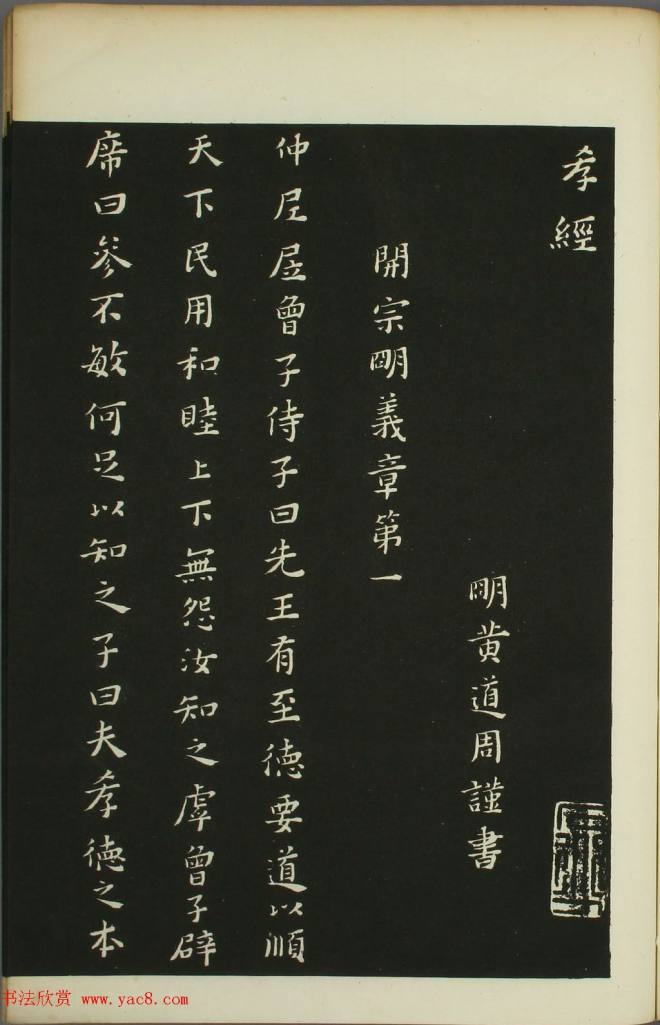 孝經
明黄道周謹書
開宗明義章第一
仲尼凥曾子侍子曰先王有至德要道以順
天下民用和睦上下無怨汝知之虖曾子辟
席曰參不敏何足以知之子曰夫孝德之本
书法欣赏 www.yac8.com